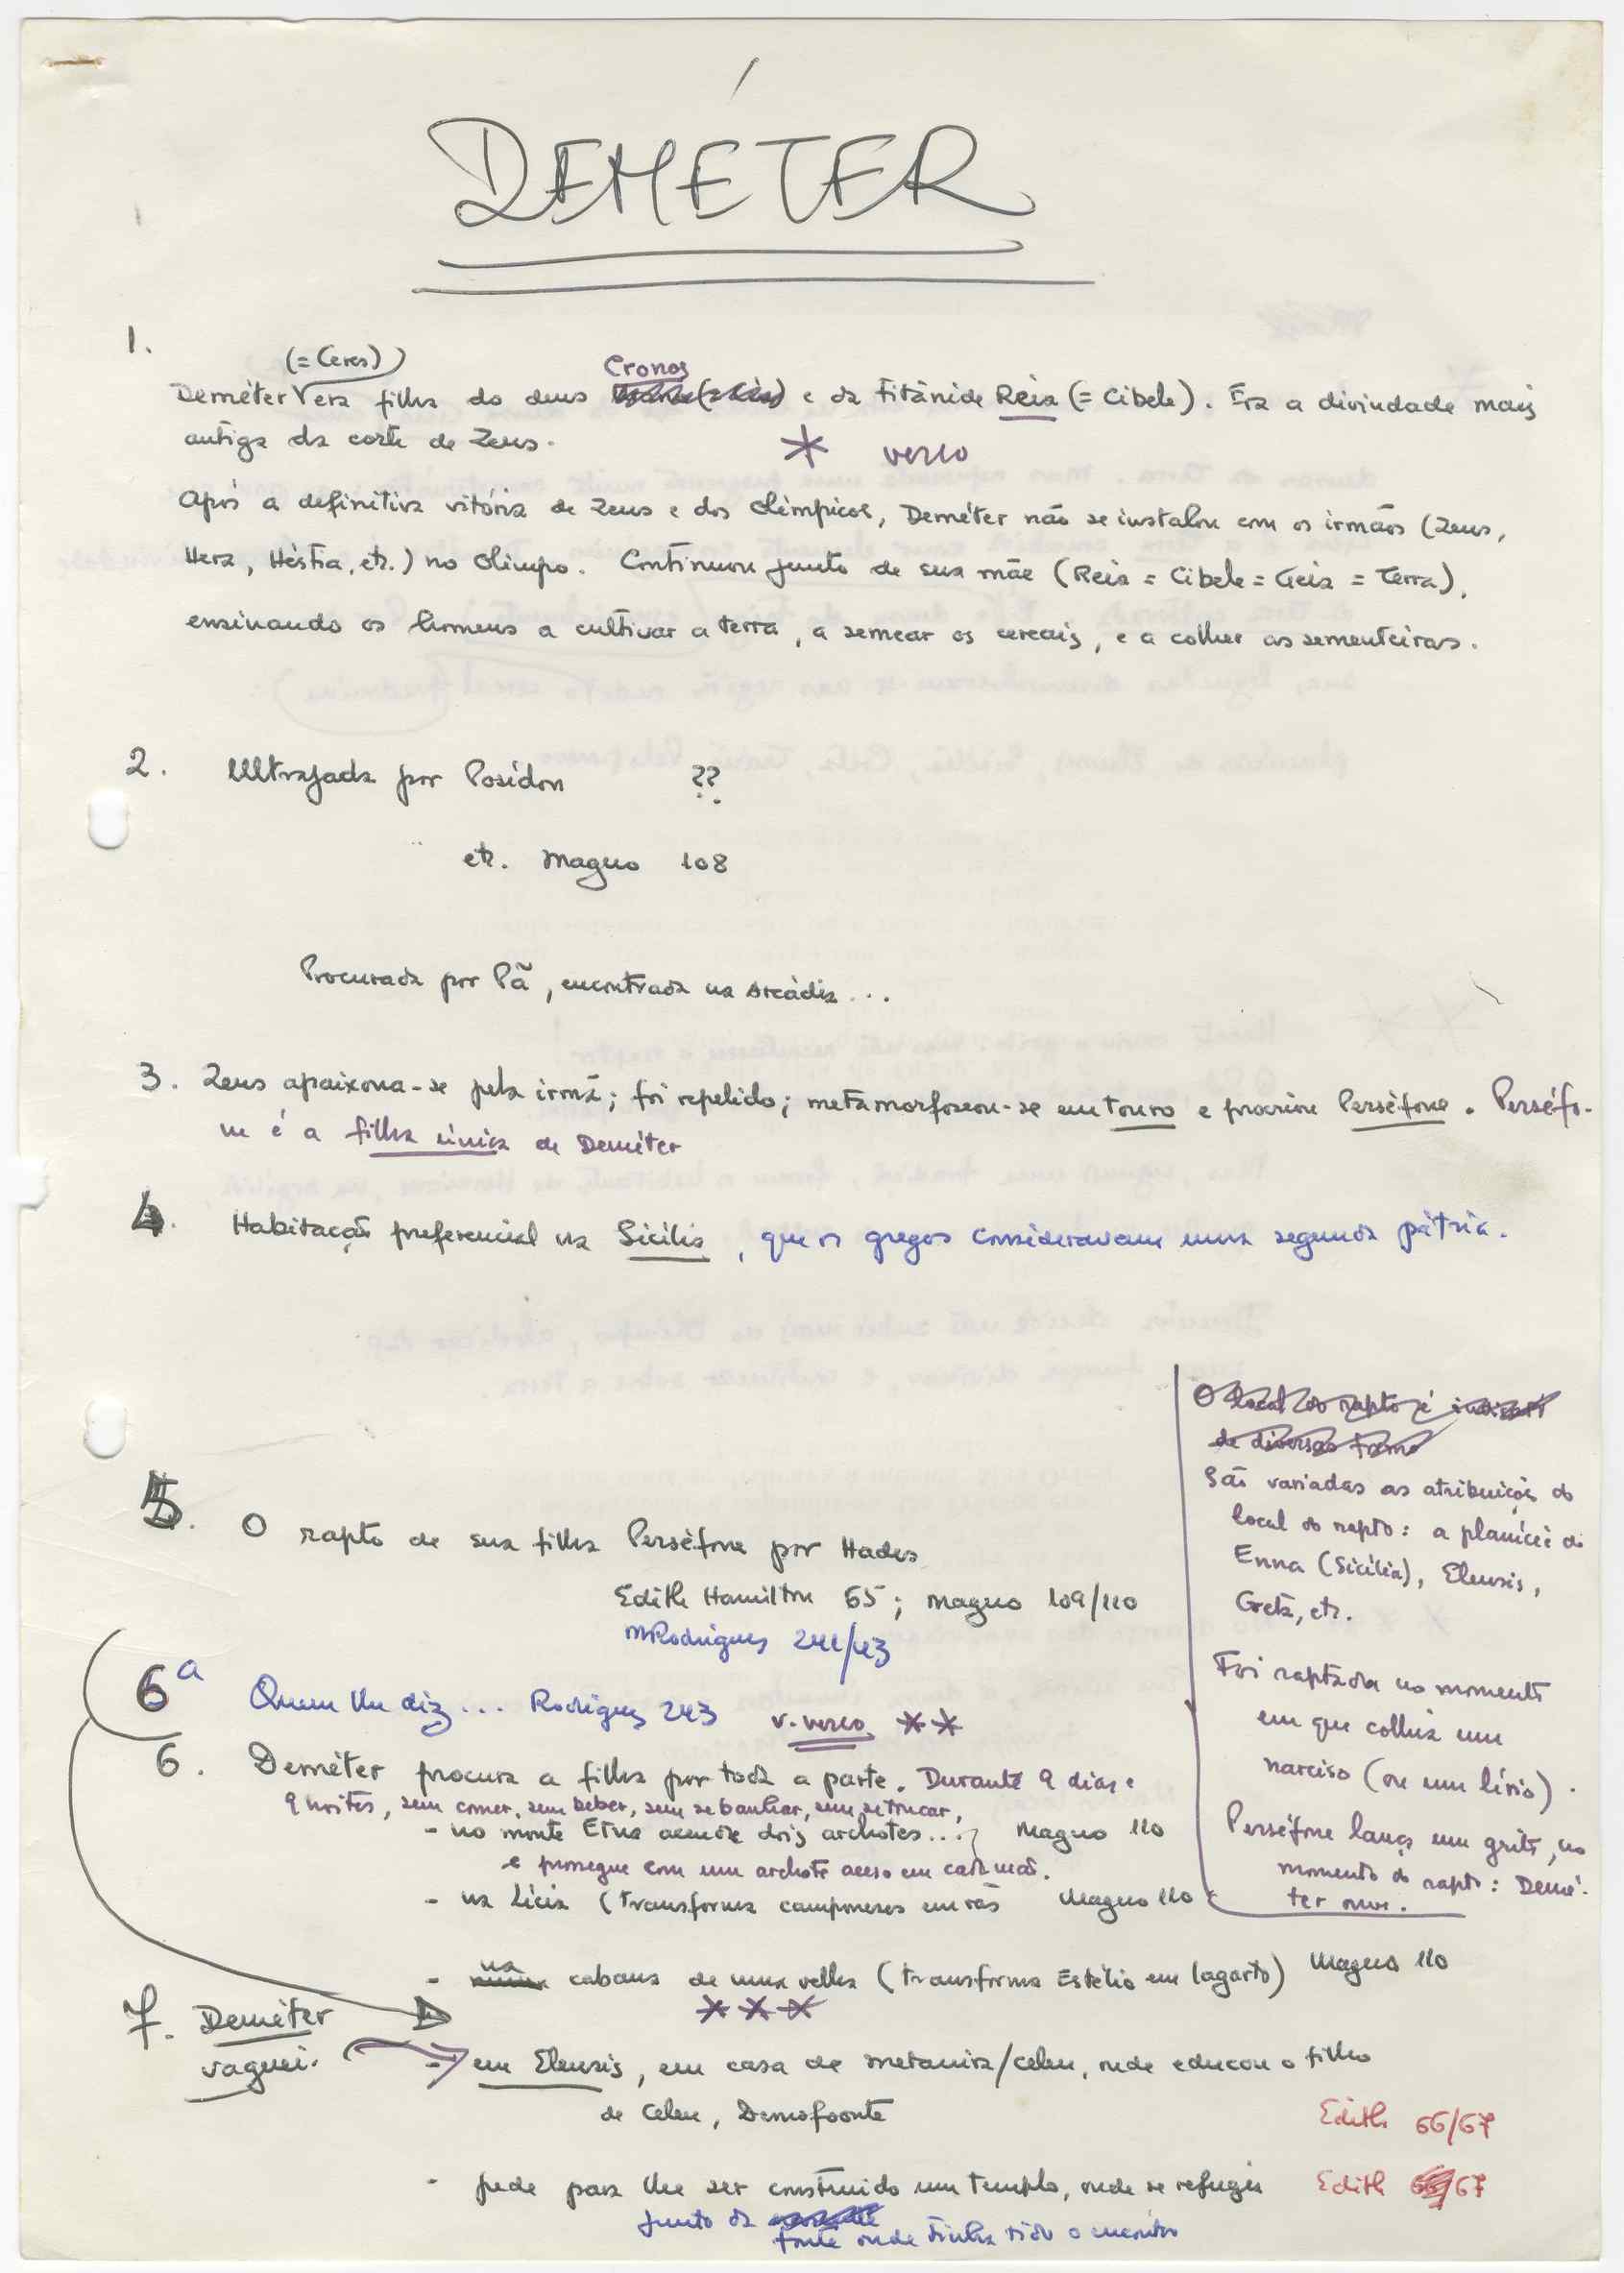 DEMÉTER
1.
(= Ceres)
Cronos
Deméter era filha do deus e da Titânide Reia (= Cibele). Era a divindade mais
antiga da corte de Zeus.
* verso
Após a definitiva vitória de Zeus e dos Olímpicos, Deméter não se instalou com os irmãos (Zeus,
Hera, Héstia, etc.) no Olimpo. Continuou junto de sua mãe (Reia = Cibele = Geia = Terra),
ensinando os homens a cultivar a terra, a semear os cereais, e a colher as sementeiras.
2. Ultrajada por Posídon ??
etc. Magno 108
Procurada por Pã, encontrada na Arcádia...
3. Zeus apaixona-se pela irmã; foi repelido; metamorfoseou-se em touro e procriou Perséfone. Perséfo-
ne é a filha única de Deméter
4. Habitação preferencial na Sicília, que os gregos consideravam uma segunda pátria.
O local do rapto é
de diversa forma
São variadas as atribuições do
local do rapto: a planície de
Enna (Sicília), Eleusis,
Creta, etc.
Foi raptada no momento
em que colhia um
narciso (ou um lírio).
Perséfone lança um grito, no
momento do rapto: Demé-
ter ouve.
5. O rapto de sua filha Perséfone por Hades
Edith Hamilton 65; Magno 109/110
MRodrigues 241/43
6a Quem lhe diz... Rodrigues 243 v. verso **
6. Deméter procura a filha por toda a parte. Durante 9 dias e
9 noites, sem comer, sem beber, sem se banhar, sem se trocar,
- no monte Etna acende dois archotes... Magno 110
e prossegue com um archote aceso em cada mão.
- na Lícia (transforma camponeses em rãs Magno 110
- na cabana de uma velha (transforma Estélio em lagarto) Magno 110
***
7. Deméter
vagueia.
- em Eleusis, em casa de Metanira/Celeu, onde educou o filho
de Celeu, Demofoonte
Edith 66/67
- pede para lhe ser construído um templo, onde se refugia Edith 67
junto da
fonte onde tinha tido o encontro